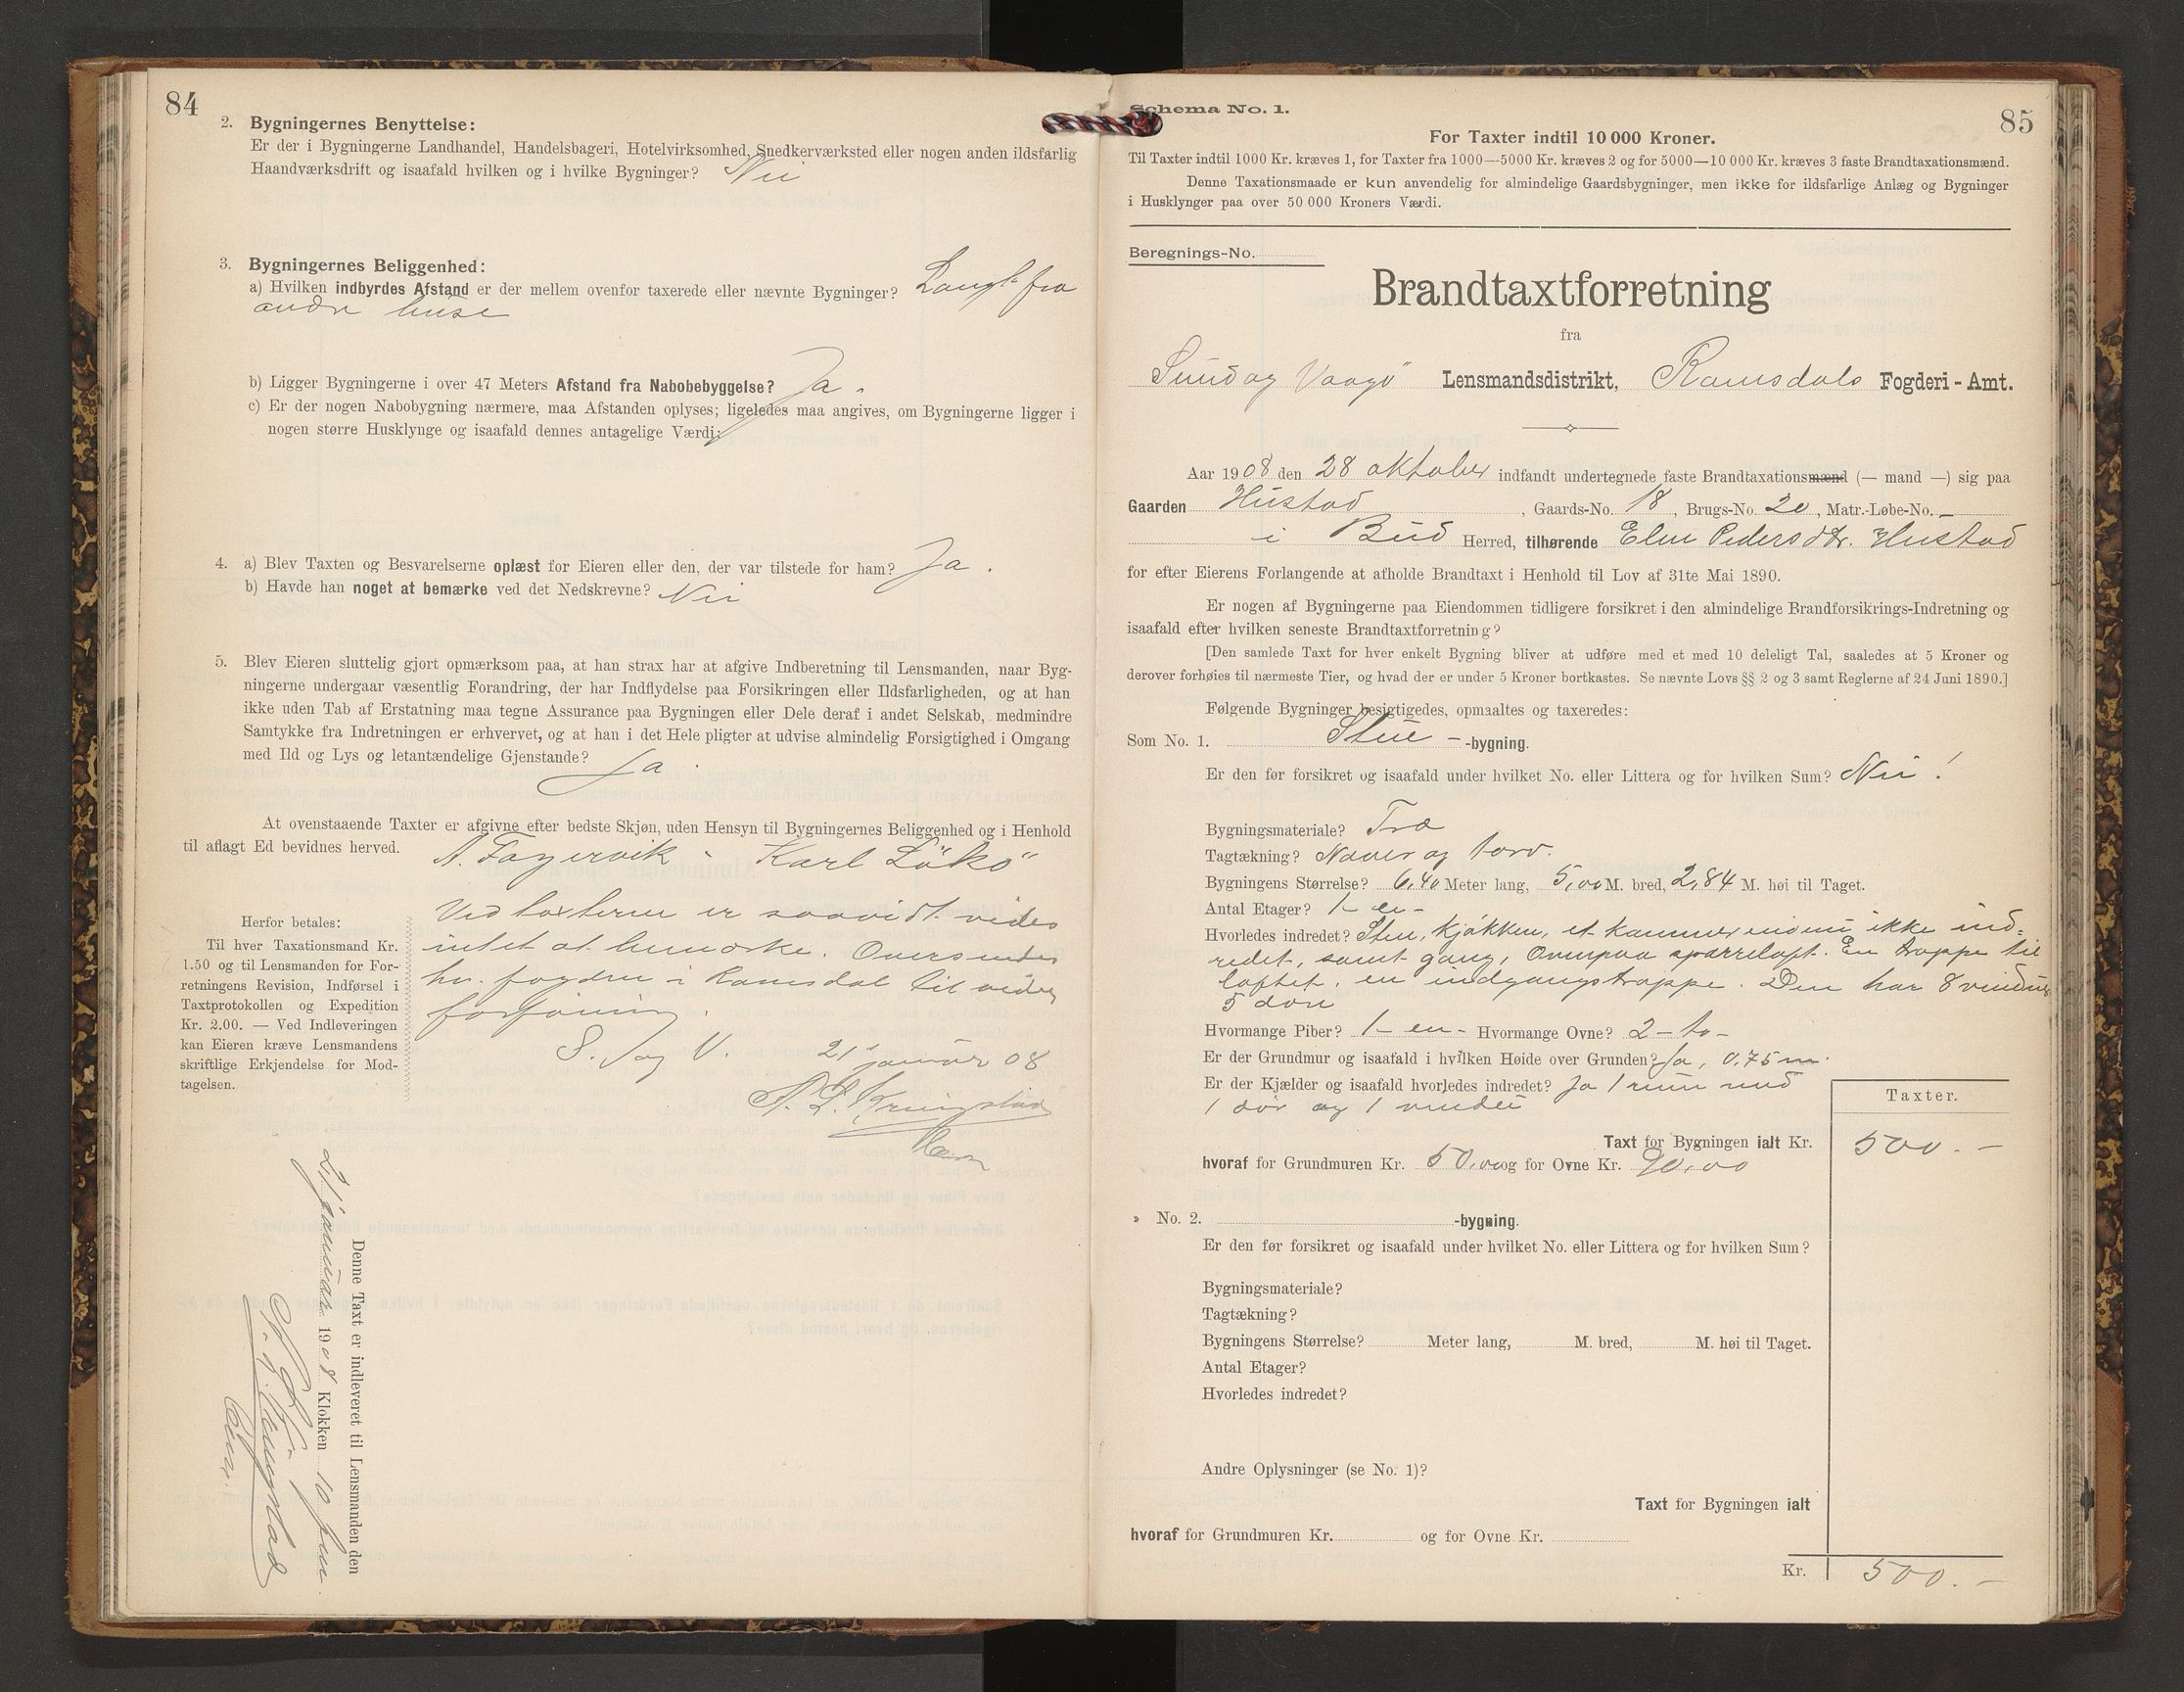 84
2. Bygningernes Benyttelse:
Er der i Bygningerne Landhandel, Handelsbageri, Hotelvirksomhed, Snedkerværksted eller nogen anden ildsfarlig
Haandværksdrift og isaafald hvilken og i hvilke Bygninger? Nei
3. Bygningernes Beliggenhed:
a) Hvilken indbyrdes Afstand er der mellem ovenfor taxerede eller nævnte Bygninger? Langt fra
andre huse
b) Ligger Bygningerne i over 47 Meters Afstand fra Nabobebyggelse? Ja.
c) Er der nogen Nabobygning nærmere, maa Afstanden oplyses; ligeledes maa angives, om Bygningerne ligger i
nogen større Husklynge og isaafald dennes antagelige Værdi:
4. a) Blev Taxten og Besvarelserne oplæst for Eieren eller den, der var tilstede for ham? Ja.
b) Havde han noget at bemærke ved det Nedskrevne? Nei
5. Blev Eieren sluttelig gjort opmærksom paa, at han strax har at afgive Indberetning til Lensmanden, naar Byg-
ningerne undergaar væsentlig Forandring, der har Indflydelse paa Forsikringen eller Ildsfarligheden, og at han
ikke uden Tab af Erstatning maa tegne Assurance paa Bygningen eller Dele deraf i andet Selskab, medmindre
Samtykke fra Indretningen er erhvervet, og at han i det Hele pligter at udvise almindelig Forsigtighed i Omgang
med Ild og Lys og letantændelige Gjenstande? Ja.
At ovenstaaende Taxter er afgivne efter bedste Skjøn, uden Hensyn til Bygningernes Beliggenhed og i Henhold
til aflagt Ed bevidnes herved. A. Fagervik. Karl Lökö
Ved taxterne er saavidt vides
intet at bemærke. Oversendes
hr. fogden i Romsdal til videre
forføining.
S. og V. 21 januar 08
A. L. Kringstad
Herfor betales:
Til hver Taxationsmand Kr.
1.50 og til Lensmanden for For-
retningens Revision, Indførsel i
Taxtprotokollen og Expedition
Kr. 2.00. — Ved Indleveringen
kan Eieren kræve Lensmandens
skriftlige Erkjendelse for Mod-
tagelsen.
Denne Taxt er indleveret til Lensmanden den
21 januar 1908 Klokken 10 fm.
A. L. Kringstad
85
Schema No. 1.
For Taxter indtil 10 000 Kroner.
Til Taxter indtil 1000 Kr. kræves 1, for Taxter fra 1000—5000 Kr. kræves 2 og for 5000—10 000 Kr. kræves 3 faste Brandtaxationsmænd.
Denne Taxationsmaade er kun anvendelig for almindelige Gaardsbygninger, men ikke for ildsfarlige Anlæg og Bygninger
i Husklynger paa over 50 000 Kroners Værdi.
Beregnings-No.
Brandtaxtforretning
fra
Sund og Vaagö Lensmandsdistrikt, Romsdals Fogderi - Amt.
Aar 1908 den 28 oktober indfandt undertegnede faste Brandtaxationsmænd (— mand —) sig paa
Gaarden Hustad, Gaards-No. 18, Brugs-No. 20, Matr.-Løbe-No. -
i Bud Herred, tilhørende Elen Pedersdtr. Hustad
for efter Eierens Forlangende at afholde Brandtaxt i Henhold til Lov af 31te Mai 1890.
Er nogen af Bygningerne paa Eiendommen tidligere forsikret i den almindelige Brandforsikrings-Indretning og
isaafald efter hvilken seneste Brandtaxtforretning?
[Den samlede Taxt for hver enkelt Bygning bliver at udføre med et med 10 deleligt Tal, saaledes at 5 Kroner og
derover forhøies til nærmeste Tier, og hvad der er under 5 Kroner bortkastes. Se nævnte Lovs §§ 2 og 3 samt Reglerne af 24 Juni 1890.]
Følgende Bygninger besigtigedes, opmaaltes og taxeredes:
Som No. 1. Stue - -bygning.
Er den før forsikret og isaafald under hvilket No. eller Littera og for hvilken Sum? Nei!
Bygningsmateriale? Træ
Tagtækning? Næver og torv.
Bygningens Størrelse? 6,40 Meter lang, 5,00 M. bred, 2,84 M. høi til Taget.
Antal Etager? 1 - en -
Hvorledes indredet? Stue, kjøkken, et kammer ikke ind-
redet, samt gang, Ovenpaa sparreloft. En trappe til
loftet, en indgangstrappe. Den har 8 vinduer
5 døre
Hvormange Piber? 1 - en - Hvormange Ovne? 2 - to -
Er der Grundmur og isaafald i hvilken Høide over Grunden? Ja, 0,75 m.
Er der Kjælder og isaafald hvorledes indredet? Ja 1 rum med
1 dør og 1 vindu
Taxter.
Taxt for Bygningen ialt Kr. 500. -
hvoraf for Grundmuren Kr. 50,00 og for Ovne Kr. 90,00
» No. 2. -bygning.
Er den før forsikret og isaafald under hvilket No. eller Littera og for hvilken Sum?
Bygningsmateriale?
Tagtækning?
Bygningens Størrelse? Meter lang, M. bred, M. høi til Taget.
Antal Etager?
Hvorledes indredet?
Andre Oplysninger (se No. 1)?
Taxt for Bygningen ialt
hvoraf for Grundmuren Kr. og for Ovne Kr.
Kr. 500. -